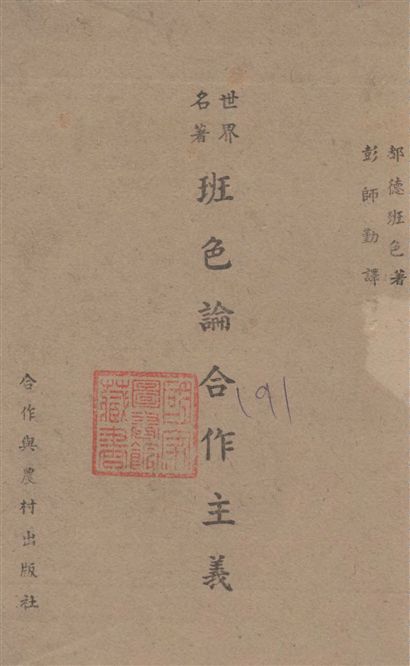 都德班色著
彭師勤譯
世界
名著
班色論合作主義
191
合作與農村出版社